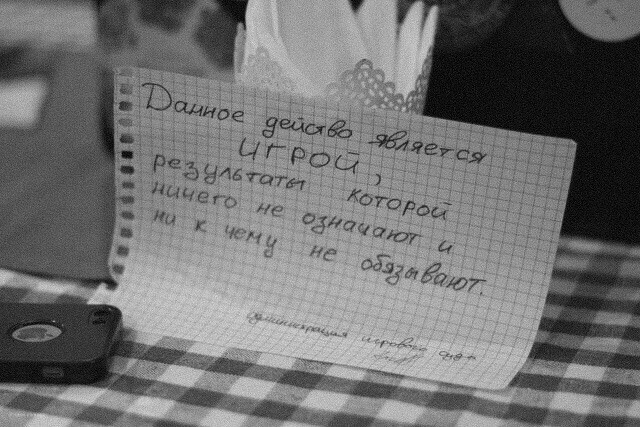 Данное действо является
ИГРОЙ,
результаты которой
ничего не означают и
ни к чему не обязывают.
администрация игрового